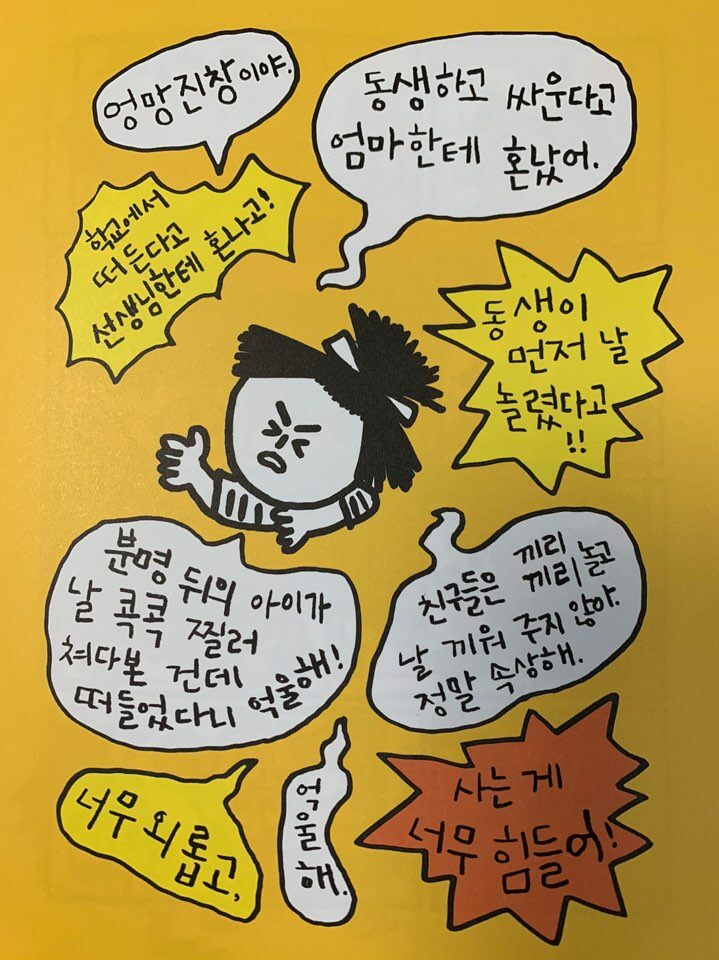 엉망진창이야.
동생하고 싸운다고
엄마한테 혼났어.
학교에서
떠든다고
선생님한테 혼나고!
동생이
먼저 날
놀렸다고
!!
분명 뒤의 아이가
날 콕콕 찔러
쳐다본 건데
떠들었다니 억울해!
친구들은 끼리
끼리 놀고
날 끼워 주지 않아.
정말 속상해.
너무 외롭고,
억울
해.
사는 게
너무 힘들어!